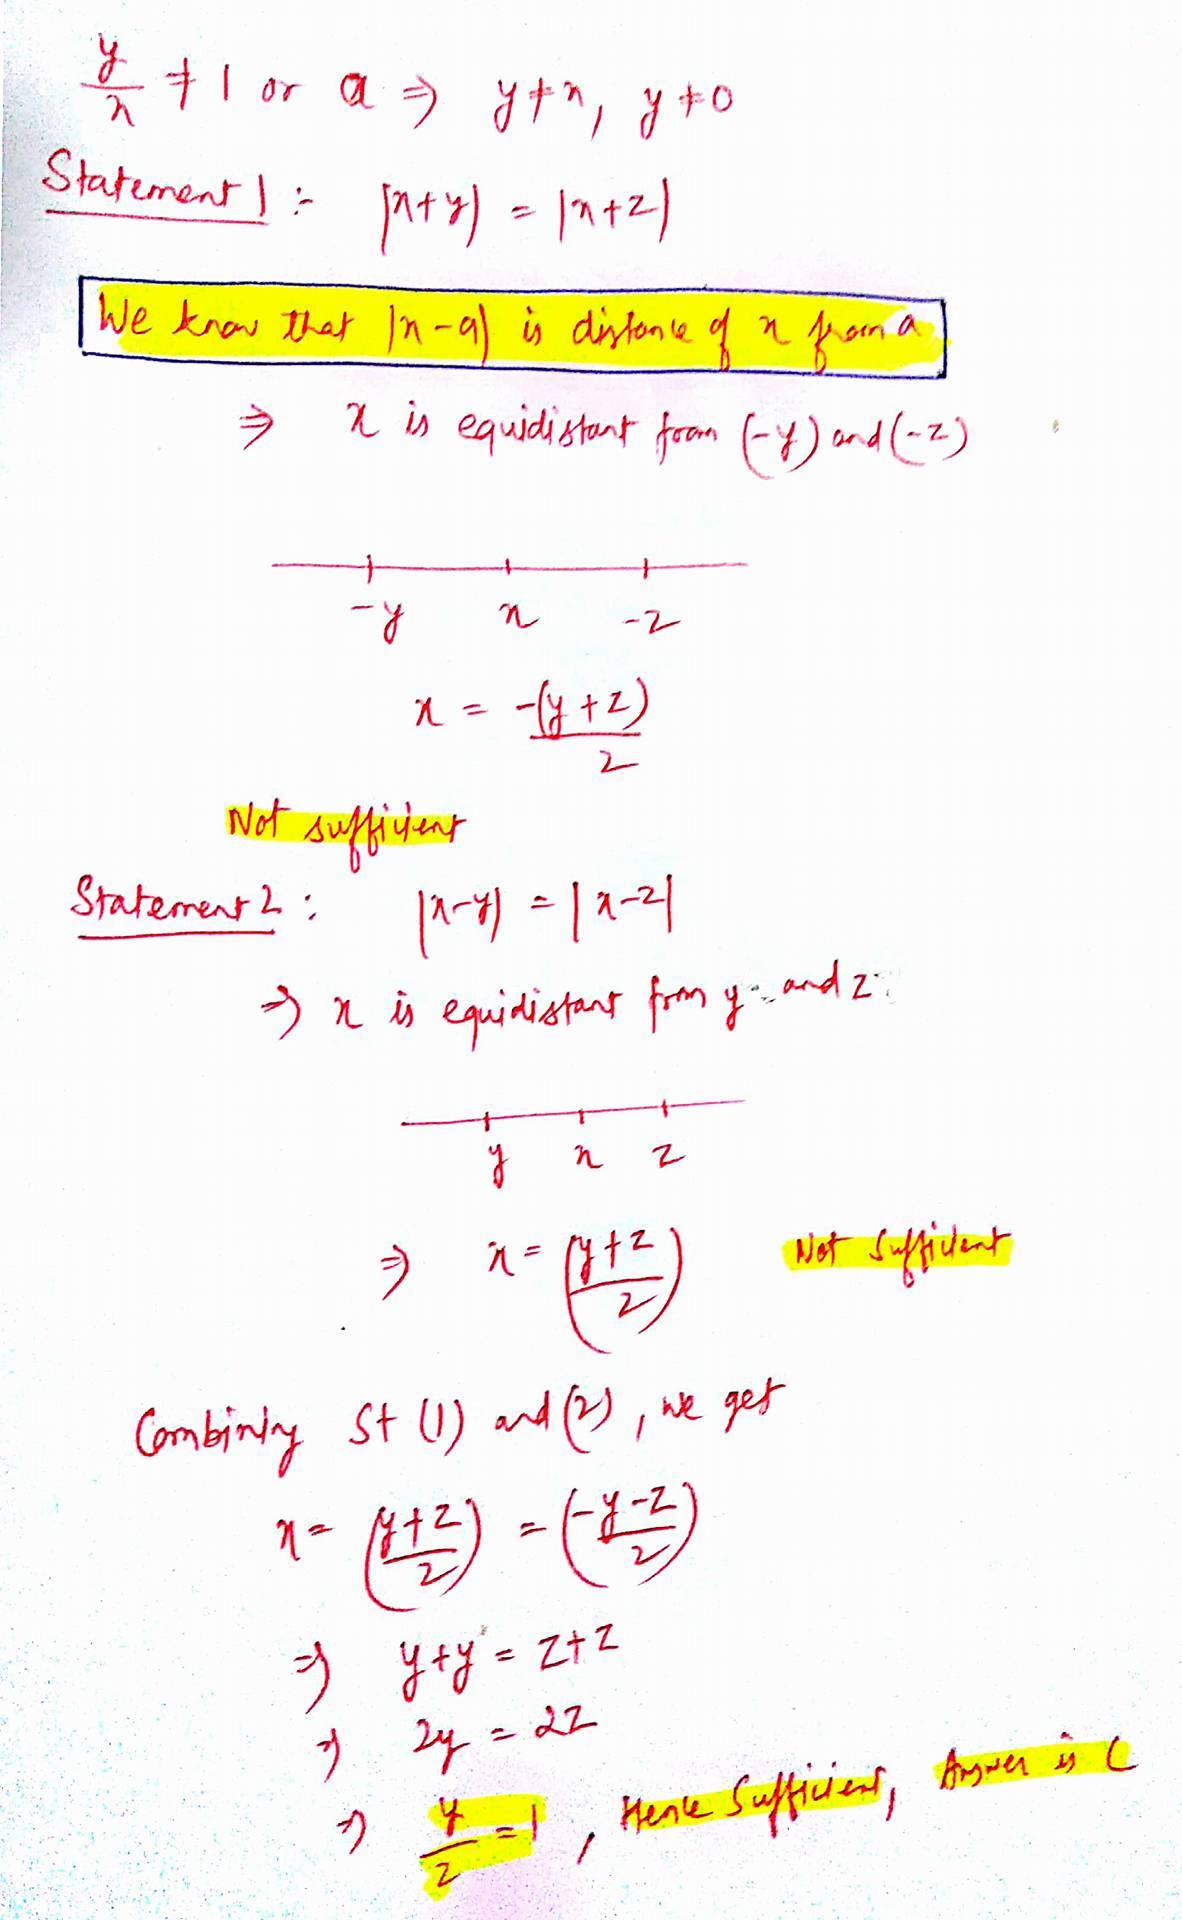 y/x ≠ 1 or a ⇒ y ≠ x, y ≠ 0
Statement 1 :- |x+y| = |x+z|
We know that |x-a| is distance of x from a
⇒ x is equidistant from (-y) and (-z)
-y x -z
x = -(y+z)/2
Not sufficient
Statement 2 : |x-y| = |x-z|
⇒ x is equidistant from y and z
y x z
⇒ x = (y+z/2) Not Sufficient
Combining St (1) and (2), we get
x = (y+z/2) = (-y-z/2)
⇒ y+y = z+z
⇒ 2y = 2z
⇒ y/z = 1, Hence Sufficient, Answer is C